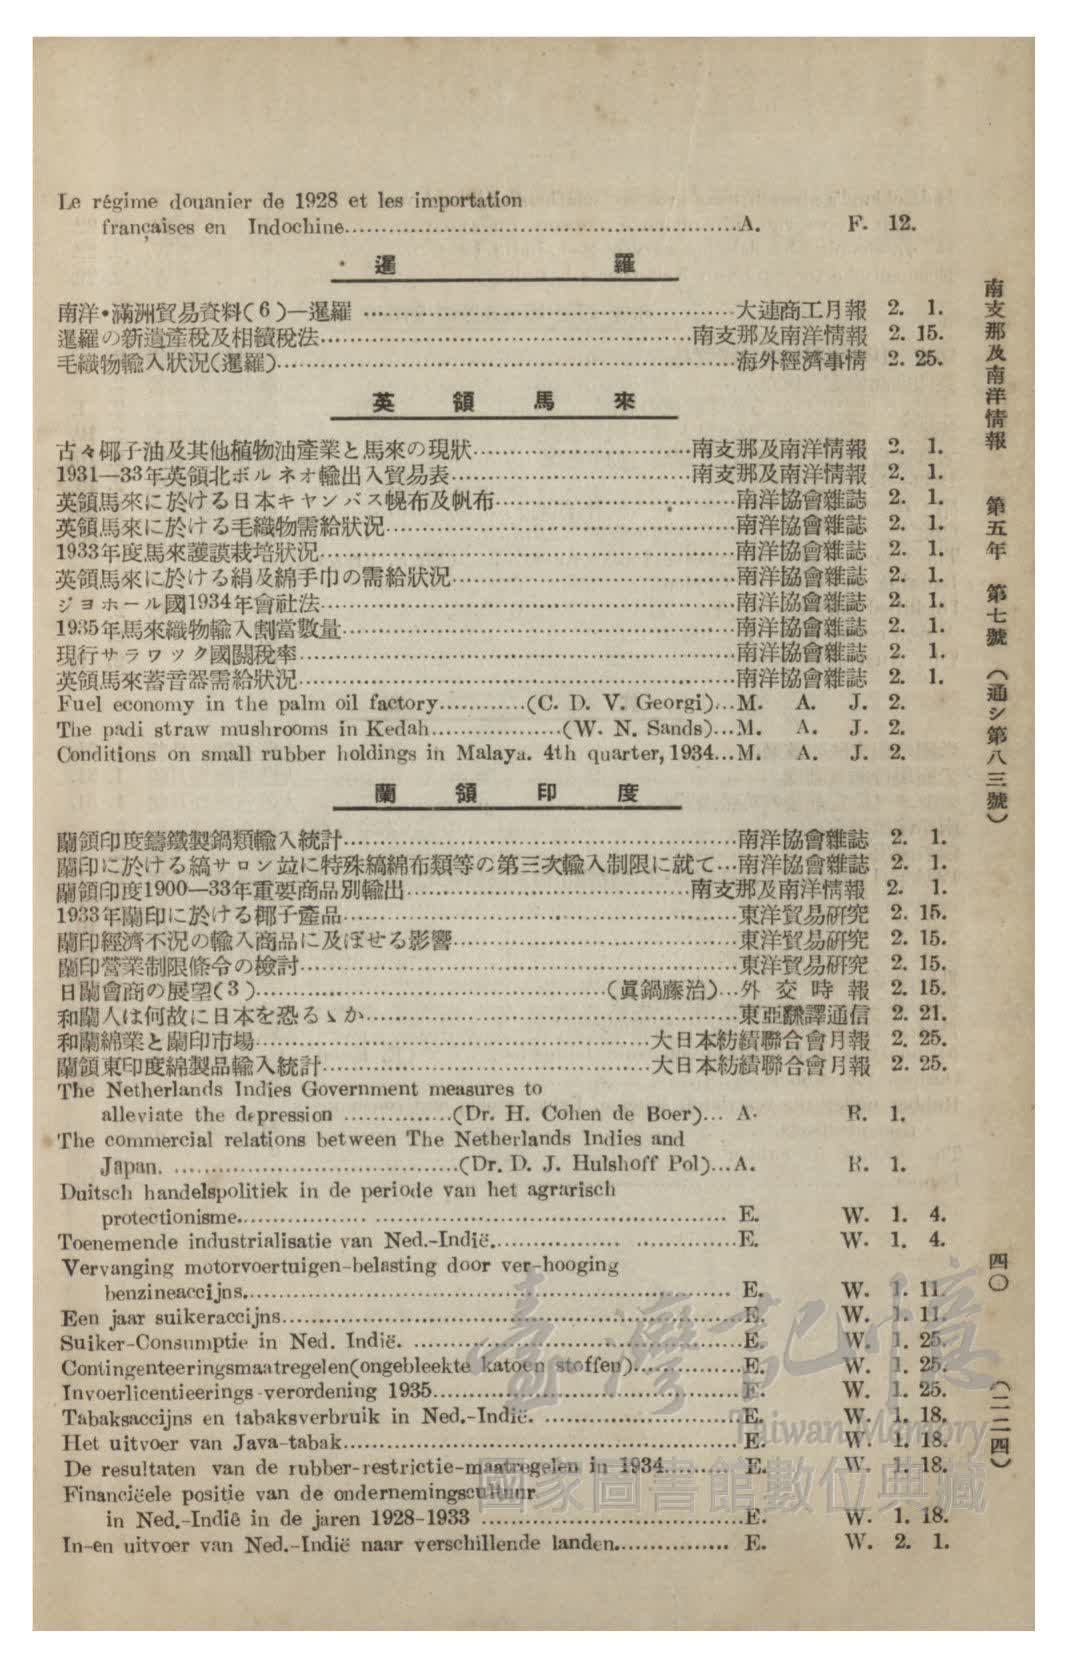 Le régime douanier de 1928 et les importation
françaises en Indochine.....A. F. 12.
暹羅
南洋•滿洲貿易資料(6)—暹羅.....大連商工月報 2. 1.
暹羅の新遺產稅及相續稅法.....南支那及南洋情報 2. 15.
毛織物輸入狀況(暹羅).....海外經濟事情 2. 25.
英領馬來
古々椰子油及其他植物油產業と馬來の現狀.....南支那及南洋情報 2. 1.
1931—33年英領北ボルネオ輸出入貿易表.....南支那及南洋情報 2. 1.
英領馬來に於ける日本キヤンバス幌布及帆布.....南洋協會雜誌 2. 1.
英領馬來に於ける毛織物需給狀況.....南洋協會雜誌 2. 1.
1933年度馬來護謨栽培狀況.....南洋協會雜誌 2. 1.
英領馬來に於ける絹及綿手巾の需給狀況.....南洋協會雜誌 2. 1.
ジヨホール國1934年會社法.....南洋協會雜誌 2. 1.
1935年馬來織物輸入割當數量.....南洋協會雜誌 2. 1.
現行サラワック國關稅率.....南洋協會雜誌 2. 1.
英領馬來蓄音器需給狀況.....南洋協會雜誌 2. 1.
Fuel economy in the palm oil factory.....(C. D. V. Georgi)...M. A. J. 2.
The padi straw mushrooms in Kedah.....(W. N. Sands)...M. A. J. 2.
Conditions on small rubber holdings in Malaya. 4th quarter, 1934...M. A. J. 2.
蘭領印度
蘭領印度鑄鐵製鍋類輸入統計.....南洋協會雜誌 2. 1.
蘭印に於ける縞サロン竝に特殊縞綿布類等の第三次輸入制限に就て...南洋協會雜誌 2. 1.
蘭領印度1900—33年重要商品別輸出.....南支那及南洋情報 2. 1.
1933年蘭印に於ける椰子產品.....東洋貿易硏究 2. 15.
蘭印經濟不況の輸入商品に及ぼせる影響.....東洋貿易硏究 2. 15.
蘭印營業制限條令の檢討.....東洋貿易硏究 2. 15.
日蘭會商の展望(3).....(眞鍋藤治)...外交時報 2. 15.
和蘭人は何故に日本を恐るゝか.....東亞飜譯通信 2. 21.
和蘭綿業と蘭印市場.....大日本紡績聯合會月報 2. 25.
蘭領東印度綿製品輸入統計.....大日本紡績聯合會月報 2. 25.
The Netherlands Indies Government measures to
alleviate the depression.....(Dr. H. Cohen de Boer)... A. R. 1.
The commercial relations between The Netherlands Indies and
Japan......(Dr. D. J. Hulshoff Pol)...A. R. 1.
Duitsch handelspolitiek in de periode van het agrarisch
protectionisme..... E. W. 1. 4.
Toenemende industrialisatie van Ned.-Indië.....E. W. 1. 4.
Vervanging motorvoertuigen-belasting door ver-hooging
benzineaccijns..... E. W. 1. 11.
Een jaar suikeraccijns.....E. W. 1. 11.
Suiker-Consumptie in Ned. Indië......E. W. 1. 25.
Contingenteeringsmaatregelen(ongebleekte katoen stoffen).....E. W. 1. 25.
Invoerlicentieerings-verordening 1935.....E. W. 1. 25.
Tabaksaccijns en tabaksverbruik in Ned.-Indië......E. W. 1. 18.
Het uitvoer van Java-tabak.....E. W. 1. 18.
De resultaten van de rubber-restrictie-maatregelen in 1934..... E. W. 1. 18.
Financiëele positie van de ondernemingscultuur
in Ned.-Indië in de jaren 1928-1933.....E. W. 1. 18.
In-en uitvoer van Ned.-Indië naar verschillende landen..... E. W. 2. 1.
南支那及南洋情報 第五年 第七號 (通シ第八三號)
四〇
(二二四)
臺灣記憶
Taiwan Memory
國家圖書館數位典藏